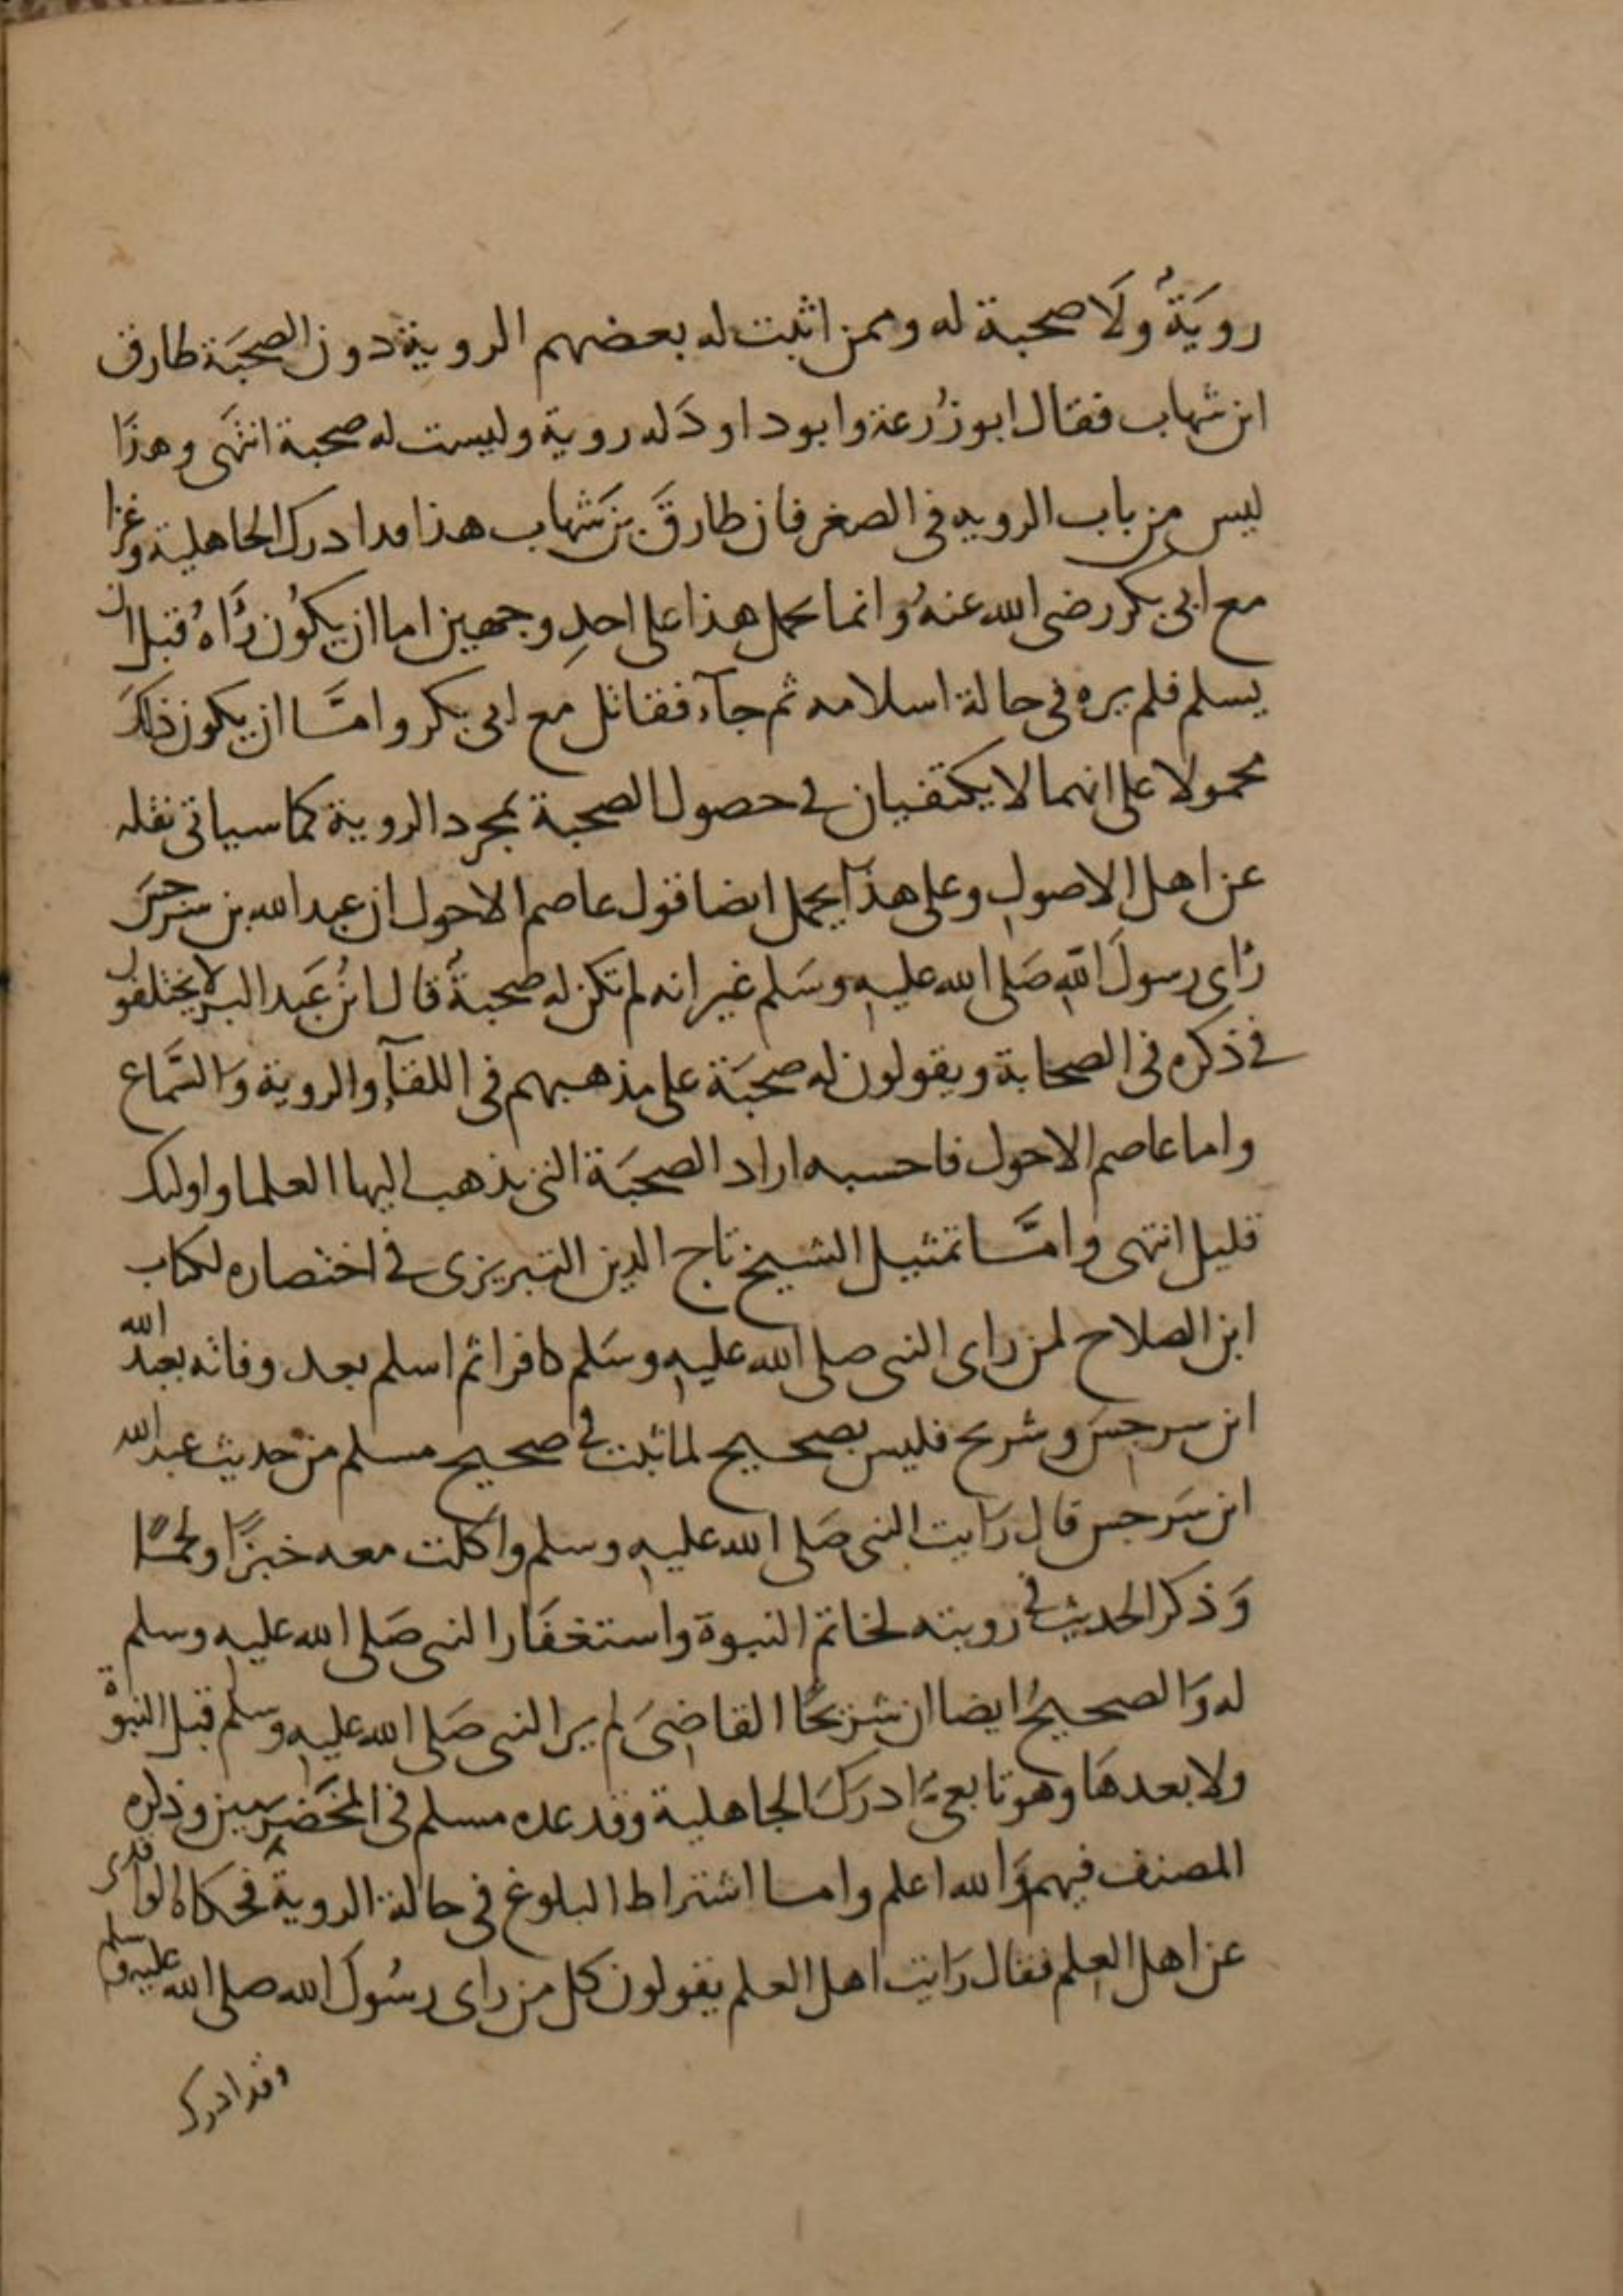 رويَةٌ ولَا صحبة له وممن اثبت له بعضهم الروية دون الصحبَة طارق
ابن شهاب فقال ابو زُرعة وابو داود له روية وليست له صحبة انتهَى وهذا
ليس من باب الرويه فى الصغر فان طارقَ بن شهاب هذا قد ادرك الجاهلية وغزا
مع ابى بكر رضى الله عنهُ وانما يحمل هذا على احدِ وجهين اما ان يكُون رَاهُ قبل ان
يسلم فلم يره فى حالة اسلامه ثم جآء فقاتل مع ابى بكر وامَّا ان يكون ذلكَ
محمولا على انهما لا يكتفيان فى حصول الصحبة بمجرد الروية كما سياتى نقله
عن اهل الاصول وعلى هذا يحمل ايضا قول عاصم الاحول ان عبد الله بن سرجسَ
رَاى رسولَ اللهِ صَلى الله عليه وسَلم غير انه لم تكن له صحبةٌ قال ابنُ عَبد البر لا يختلفون
فى ذكره فى الصحابة ويقولون له صحبَة على مذهبهم فى اللقآء والروية وَالسَّماع
واما عاصم الاحول فاحسبه اراد الصحبَة التى يذهب اليها العلما واوليك
قليل انتهى وامَّا تمثيل الشيخ تاج الدين التبريزى فى اختصاره لكتاب
ابن الصلاح لمن راى النبى صلى الله عليه وسَلم كافرا ثم اسلم بعد وفاته بعبد الله
ابن سرجسَ وشريح فليس بصحيح لما ثبت فى صحيح مسلم من حديث عبد الله
ابن سَرجس قال رَايت النبى صَلى الله عليه وسلم واكلت معه خبزًا ولحمًا
وَذكر الحديث فى رويته لخاتم النبوة واستغفَار النبى صَلى الله عليه وسلم
له وَالصحيحُ ايضا ان شريحًا القاضىَ لم ير النبى صَلى الله عليه وسلم قبل النبوة
ولا بعدهَا وهو تابعىٌّ ادرَكَ الجاهلية وقد عده مسلم فى المخَضرَمين وذكره
المصنف فيهم وَالله اعلم واما اشتراط البلوغ فى حالة الروية فحكاه الواقدى
عن اهل العلم فقال رَايت اهل العلم يقولون كل من راى رسُولَ الله صلى الله عليه وسلم
وقد ادرك